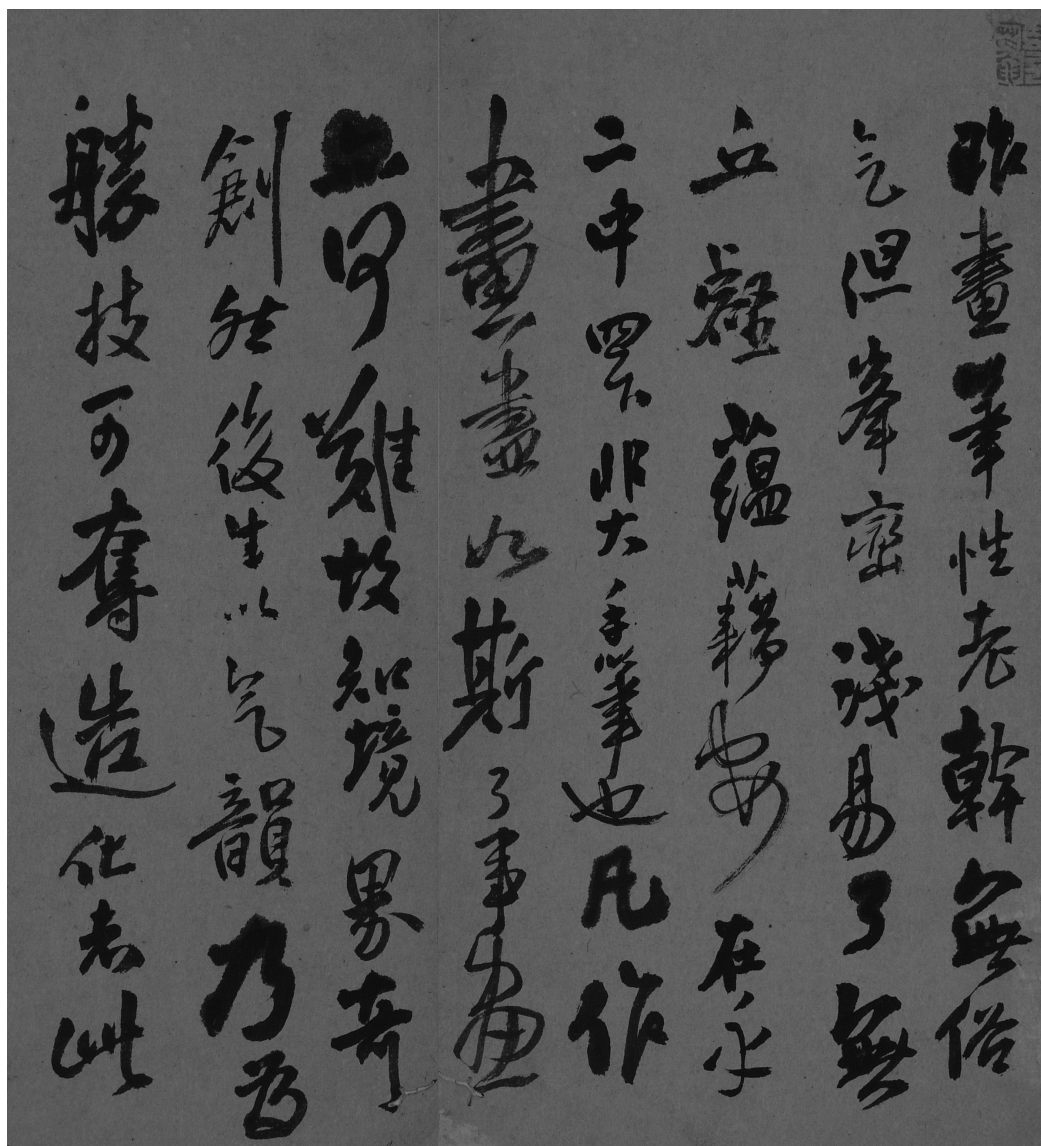 昨畫筆性老幹無俗
气但峯巒淺易了無
丘壑蘊藉要在乎
二中四下非大手筆也凡作
畫盡如斯了事画
亦何難故知境界奇
創然後生以气韻乃為
勝技可奪造化者此